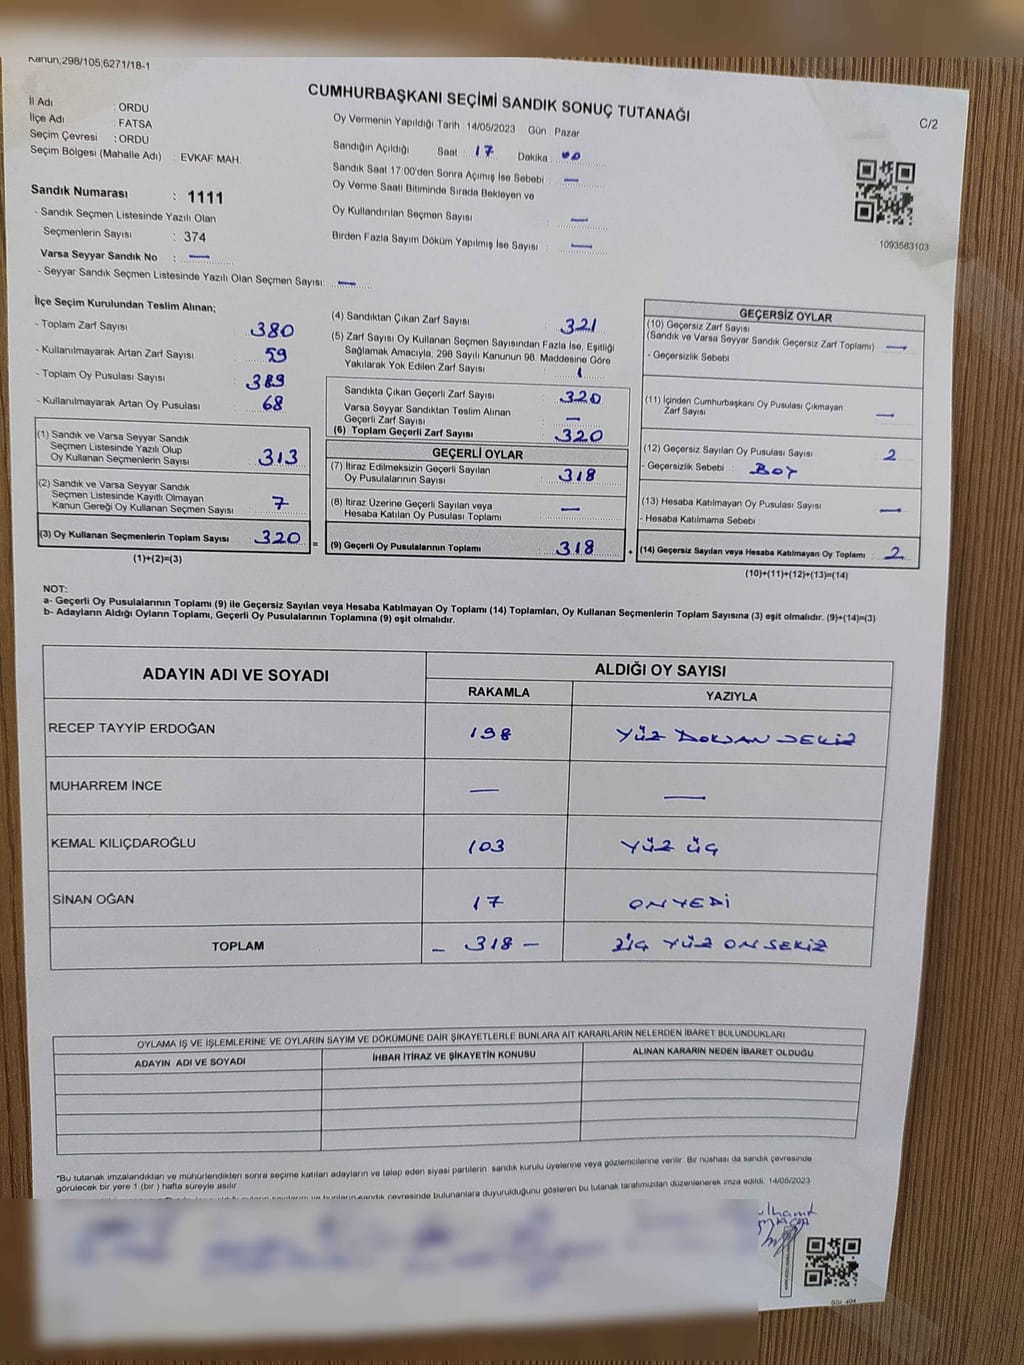 Kanun;298/105;6271/18-1
CUMHURBAŞKANI SEÇİMİ SANDIK SONUÇ TUTANAĞI
C/2
İl Adı : ORDU
İlçe Adı : FATSA
Seçim Çevresi : ORDU
Seçim Bölgesi (Mahalle Adı) : EVKAF MAH.
Sandık Numarası : 1111
- Sandık Seçmen Listesinde Yazılı Olan
Seçmenlerin Sayısı : 374
Varsa Seyyar Sandık No : —
- Seyyar Sandık Seçmen Listesinde Yazılı Olan Seçmen Sayısı: —
Oy Vermenin Yapıldığı Tarih : 14/05/2023 Gün : Pazar
Sandığın Açıldığı Saat : 17 Dakika : 00
Sandık Saat 17:00'den Sonra Açımış İse Sebebi : —
Oy Verme Saati Bitiminde Sırada Bekleyen ve
Oy Kullandırılan Seçmen Sayısı : —
Birden Fazla Sayım Döküm Yapılmış İse Sayısı : —
1093583103
İlçe Seçim Kurulundan Teslim Alınan;
- Toplam Zarf Sayısı : 380
- Kullanılmayarak Artan Zarf Sayısı : 59
- Toplam Oy Pusulası Sayısı : 389
- Kullanılmayarak Artan Oy Pusulası : 68
(1) Sandık ve Varsa Seyyar Sandık
Seçmen Listesinde Yazılı Olup
Oy Kullanan Seçmenlerin Sayısı : 313
(2) Sandık ve Varsa Seyyar Sandık
Seçmen Listesinde Kayıtlı Olmayan
Kanun Gereği Oy Kullanan Seçmen Sayısı : 7
(3) Oy Kullanan Seçmenlerin Toplam Sayısı : 320 =
(1)+(2)=(3)
(4) Sandıktan Çıkan Zarf Sayısı : 321
(5) Zarf Sayısı Oy Kullanan Seçmen Sayısından Fazla İse, Eşitliği
Sağlamak Amacıyla, 298 Sayılı Kanunun 98. Maddesine Göre
Yakılarak Yok Edilen Zarf Sayısı : 1
Sandıkta Çıkan Geçerli Zarf Sayısı : 320
Varsa Seyyar Sandıktan Teslim Alınan
Geçerli Zarf Sayısı : —
(6) Toplam Geçerli Zarf Sayısı : 320
GEÇERLİ OYLAR
(7) İtiraz Edilmeksizin Geçerli Sayılan
Oy Pusulalarının Sayısı : 318
(8) İtiraz Üzerine Geçerli Sayılan veya
Hesaba Katılan Oy Pusulası Toplamı : —
(9) Geçerli Oy Pusulalarının Toplamı : 318 +
GEÇERSİZ OYLAR
(10) Geçersiz Zarf Sayısı
(Sandık ve Varsa Seyyar Sandık Geçersiz Zarf Toplamı) : —
- Geçersizlik Sebebi :
(11) İçinden Cumhurbaşkanı Oy Pusulası Çıkmayan
Zarf Sayısı : —
(12) Geçersiz Sayılan Oy Pusulası Sayısı : 2
- Geçersizlik Sebebi : BOŞ
(13) Hesaba Katılmayan Oy Pusulası Sayısı : —
- Hesaba Katılmama Sebebi :
(14) Geçersiz Sayılan veya Hesaba Katılmayan Oy Toplamı : 2
(10)+(11)+(12)+(13)=(14)
NOT:
a- Geçerli Oy Pusulalarının Toplamı (9) ile Geçersiz Sayılan veya Hesaba Katılmayan Oy Toplamı (14) Toplamları, Oy Kullanan Seçmenlerin Toplam Sayısına (3) eşit olmalıdır. (9)+(14)=(3)
b- Adayların Aldığı Oyların Toplamı, Geçerli Oy Pusulalarının Toplamına (9) eşit olmalıdır.
ADAYIN ADI VE SOYADI ALDIĞI OY SAYISI
RAKAMLA YAZIYLA
RECEP TAYYİP ERDOĞAN 198 YÜZ DOKSAN SEKİZ
MUHARREM İNCE — —
KEMAL KILIÇDAROĞLU 103 YÜZ ÜÇ
SİNAN OĞAN 17 ONYEDİ
TOPLAM - 318 - ÜÇ YÜZ ON SEKİZ
OYLAMA İŞ VE İŞLEMLERİNE VE OYLARIN SAYIM VE DÖKÜMÜNE DAİR ŞİKAYETLERLE BUNLARA AİT KARARLARIN NELERDEN İBARET BULUNDUKLARI
ADAYIN ADI VE SOYADI İHBAR İTİRAZ VE ŞİKAYETİN KONUSU ALINAN KARARIN NEDEN İBARET OLDUĞU
*Bu tutanak imzalandıktan ve mühürlendikten sonra seçime katılan adayların ve talep eden siyasi partilerin sandık kurulu üyelerine veya gözlemcilerine verilir. Bir nüshası da sandık çevresinde
görülecek bir yere 1 (bir) hafta süreyle asılır.
bulunanlara duyurulduğunu gösteren bu tutanak tarafımızdan düzenlenerek imza edildi. 14/05/2023